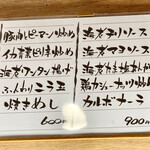 豚肉ピーマン炒め
イカ青菜ピリ辛炒め
海老ワンタン揚げ
ふんわりニラ玉
焼きめし
600
海老チリソース
海老マヨソース
鶏カシューナッツ炒め
カルボナーラ
900